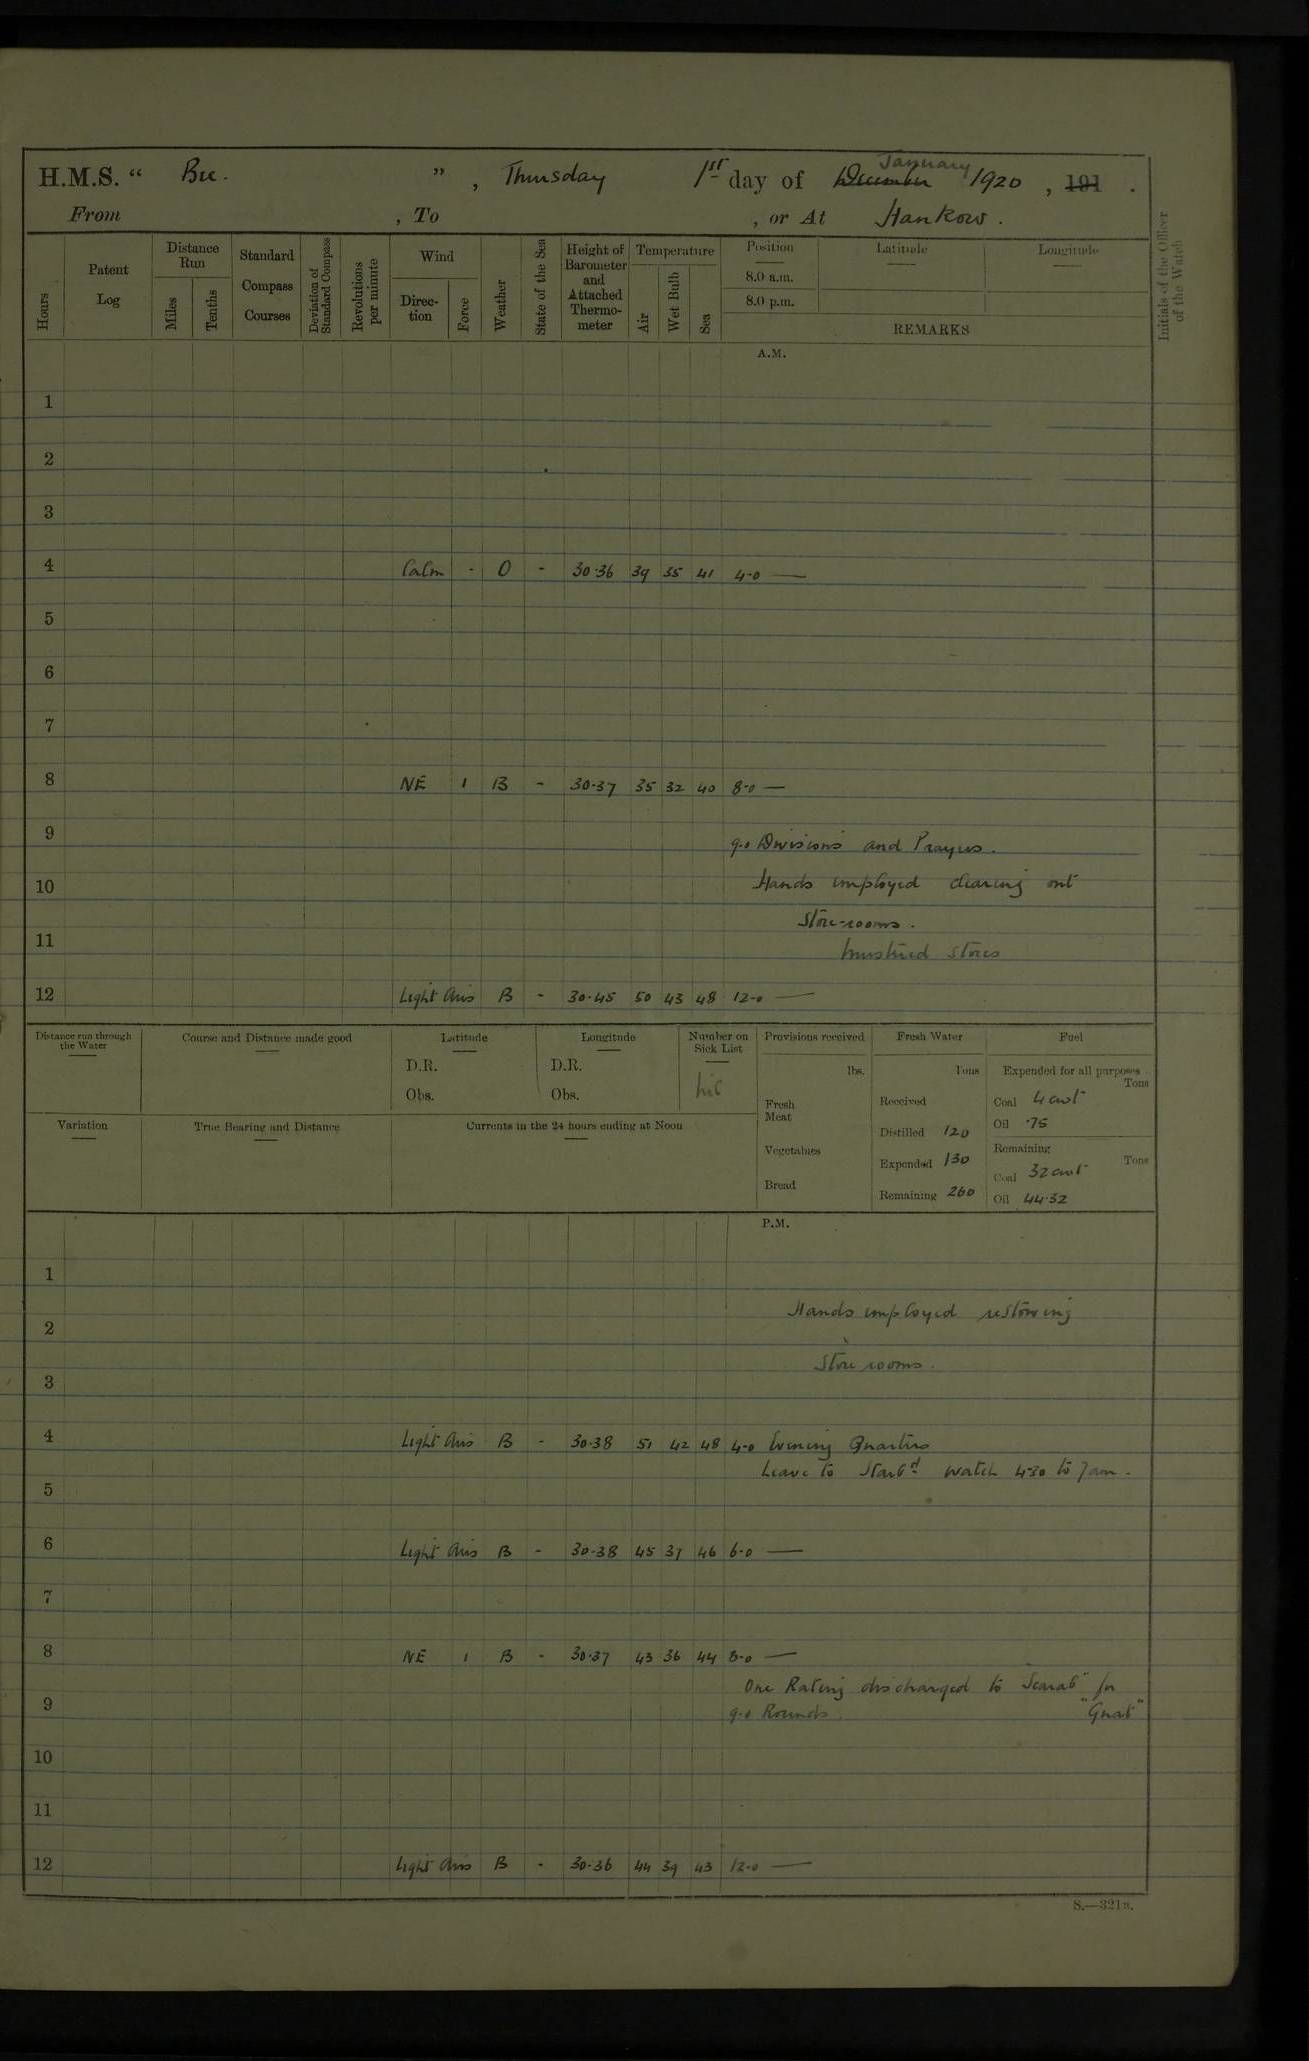 H.M.S. " Bee. ", Thursday 1st day of December January 1920, 191 .
From , To , or At Hankow.
Hours
Patent Log
Distance Run
Miles
Tenths
Standard Compass Courses
Deviation of Standard Compass
Revolutions per minute
Wind
Direc-tion
Force
Weather
State of the Sea
Height of Barometer and Attached Thermo-meter
Temperature
Air
Wet Bulb
Sea
Position
8.0 a.m.
8.0 p.m.
Latitude
Longitude
REMARKS
Initials of the Officer of the Watch
A.M.
1
2
3
4 Calm - O - 30·36 39 35 41 4-0 —
5
6
7
8 NE 1 B - 30-37 35 32 40 8-0 —
9 9-0 Divisions and Prayers.
10 Hands employed clearing out
Store-rooms.
11 mustered stores
12 Light Airs B - 30-45 50 43 48 12-0 —
Distance run through the Water
Course and Distance made good
Latitude
D.R.
Obs.
Longitude
D.R.
Obs.
Number on Sick List
nil
Provisions received
lbs.
Fresh Meat
Vegetables
Bread
Fresh Water
Tons
Received
Distilled 120
Expended 130
Remaining 260
Fuel
Expended for all purposes
Tons
Coal 4 cwt
Oil ·75
Remaining
Tons
Coal 32 cwt
Oil 44·32
Variation
True Bearing and Distance
Currents in the 24 hours ending at Noon
P.M.
1
Hands employed restowing
2
Store rooms.
3
4 Light Airs B - 30-38 51 42 48 4-0 Evening Quarters
Leave to Starbd watch 4-30 to 7am.
5
6 Light Airs B - 30-38 45 37 46 6-0 —
7
8 NE 1 B - 30-37 43 36 44 8-0 —
One Rating discharged to "Scarab" for
9 9-0 Rounds. "Gnat"
10
11
12 Light Airs B - 30-36 44 39 43 12-0 —
S.—321B.